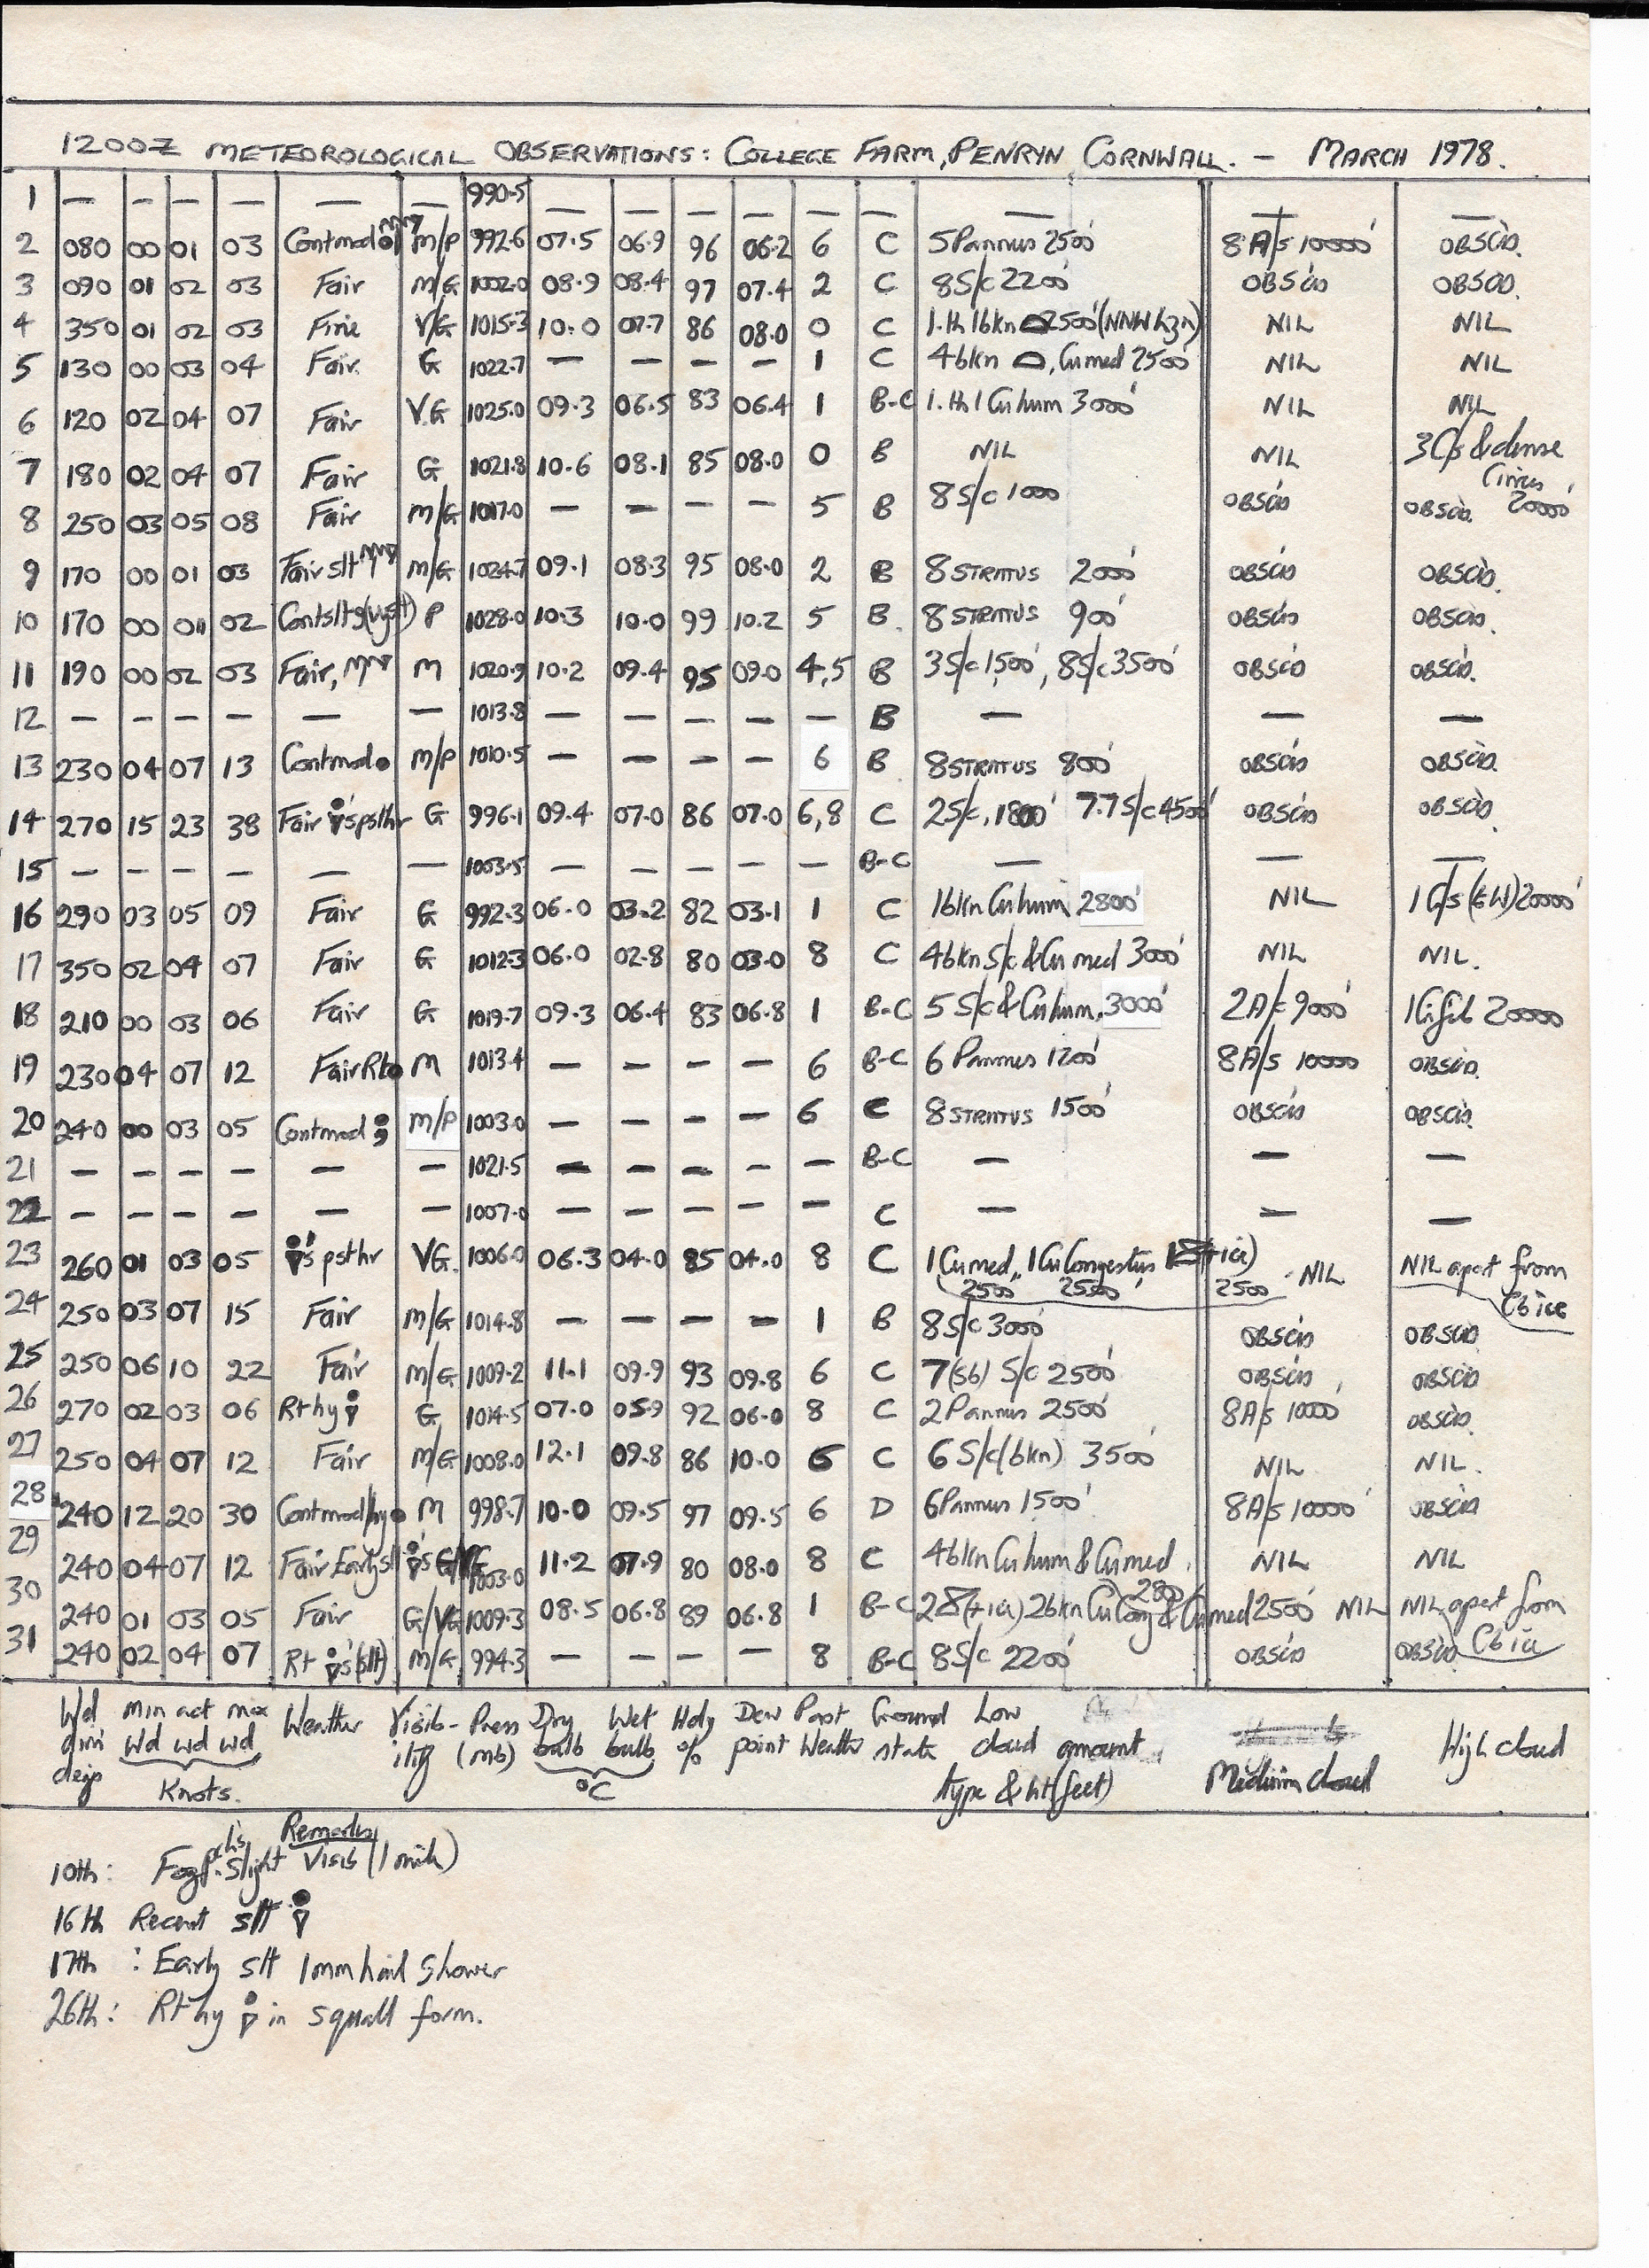 1200Z METEOROLOGICAL OBSERVATIONS: COLLEGE FARM, PENRYN CORNWALL. - MARCH 1978.
1 — — — — — — 990.5 — — — — — — — — —
2 080 00 01 03 Contmod m/P 992.6 07.5 06.9 96 06.2 6 C 5 Pannus 2500' 8 A/s 10000' OBSCD.
3 090 01 02 03 Fair M/G 1002.0 08.9 08.4 97 07.4 2 C 8 S/c 2200' OBSCD OBSCD.
4 350 01 02 03 Fine V/G 1015.3 10.0 07.7 86 08.0 0 C 1.th 1bkn 2500' (NNW hzn) NIL NIL
5 130 00 03 04 Fair. G 1022.7 — — — — 1 C 4bkn , Cumed 2500' NIL NIL
6 120 02 04 07 Fair V.G 1025.0 09.3 06.5 83 06.4 1 B-C 1.th 1 Cuhum 3000' NIL NIL
7 180 02 04 07 Fair G 1021.8 10.6 08.1 85 08.0 0 B NIL NIL 3C/s & dense Cirrus 20000'
8 250 03 05 08 Fair M/G 1017.0 — — — — 5 B 8 S/c 1000' OBSCD OBSCD.
9 170 00 01 03 Fair slt M/G 1024.7 09.1 08.3 95 08.0 2 B 8 STRATUS 2000' OBSCD OBSCD.
10 170 00 01 02 Contslt P 1028.0 10.3 10.0 99 10.2 5 B. 8 STRATUS 900' OBSCD OBSCD.
11 190 00 02 03 Fair, M 1020.9 10.2 09.4 95 09.0 4,5 B 3S/c 1500', 8S/c 3500' OBSCD OBSCD.
12 — — — — — — 1013.8 — — — — — B — — —
13 230 04 07 13 Contmod M/P 1010.5 — — — — 6 B 8 STRATUS 800' OBSCD OBSCD.
14 270 15 23 38 Fair 's psthr G 996.1 09.4 07.0 86 07.0 6,8 C 2S/c, 1800' 7.7S/c 4500' OBSCD OBSCD.
15 — — — — — — 1003.5 — — — — — B-C — — —
16 290 03 05 09 Fair G 992.3 06.0 03.2 82 03.1 1 C 1bkn Cuhum 2800' NIL 1 C/s (EW) 20000'
17 350 02 04 07 Fair G 1012.3 06.0 02.8 80 03.0 8 C 4bkn S/c & Cu med 3000' NIL NIL.
18 210 00 03 06 Fair G 1019.7 09.3 06.4 83 06.8 1 B-C 5 S/c & Cuhum, 3000' 2A/c 9000' 1Cifib 20000
19 230 04 07 12 Fair Rt M 1013.4 — — — — 6 B-C 6 Pannus 1200' 8A/s 10000 OBSCD.
20 240 00 03 05 Contmod M/P 1003.0 — — — — 6 C 8 STRATUS 1500' OBSCD OBSCD.
21 — — — — — — 1021.5 — — — — — B-C — — —
22 — — — — — — 1007.0 — — — — — C — — —
23 260 01 03 05 's psthr VG. 1006.0 06.3 04.0 85 04.0 8 C 1 Cumed, 1 Cu Congestus (+ice) NIL NIL apart from
2500' 2500' 2500 Cb ice
24 250 03 07 15 Fair M/G 1014.8 — — — — 1 B 8S/c 3000' OBSCD OBSCD
25 250 06 10 22 Fair M/G 1009.2 11.1 09.9 93 09.8 6 C 7(sb) S/c 2500' OBSCD OBSCD
26 270 02 03 06 Rt hy G 1014.5 07.0 05.9 92 06.0 8 C 2 Pannus 2500' 8A/s 10000' OBSCD.
27 250 04 07 12 Fair M/G 1008.0 12.1 09.8 86 10.0 6 C 6 S/c (bkn) 3500' NIL NIL.
28 240 12 20 30 Contmod/hy M 998.7 10.0 09.5 97 09.5 6 D 6 Pannus 1500' 8A/s 10000' OBSCD
29 240 04 07 12 Fair Early sl 's 1003.0 11.2 07.9 80 08.0 8 C 4bkn Cuhum & Cumed 2800' NIL NIL
30 240 01 03 05 Fair G/VG 1009.3 08.5 06.8 89 06.8 1 B-C (+ice) 2bkn Cu Cong & Cumed 2500' NIL NIL apart from
31 240 02 04 07 Rt 's (slt) M/G 994.3 — — — — 8 B-C 8S/c 2200' OBSCD OBSCD Cb ice
Wd Min act max Weather Visib- Press Dry Wet Hdy Dew Past Ground Low High cloud
dirn Wd wd wd ility (mb) bulb bulb % point Weather state cloud amount
degs Knots. °C type & ht (feet) Medium cloud
Remarks
10th: Fog pchs. Slight Visib (1 mile)
16th Recent slt
17th: Early slt 1mm hail shower
26th: Rt hy in squall form.